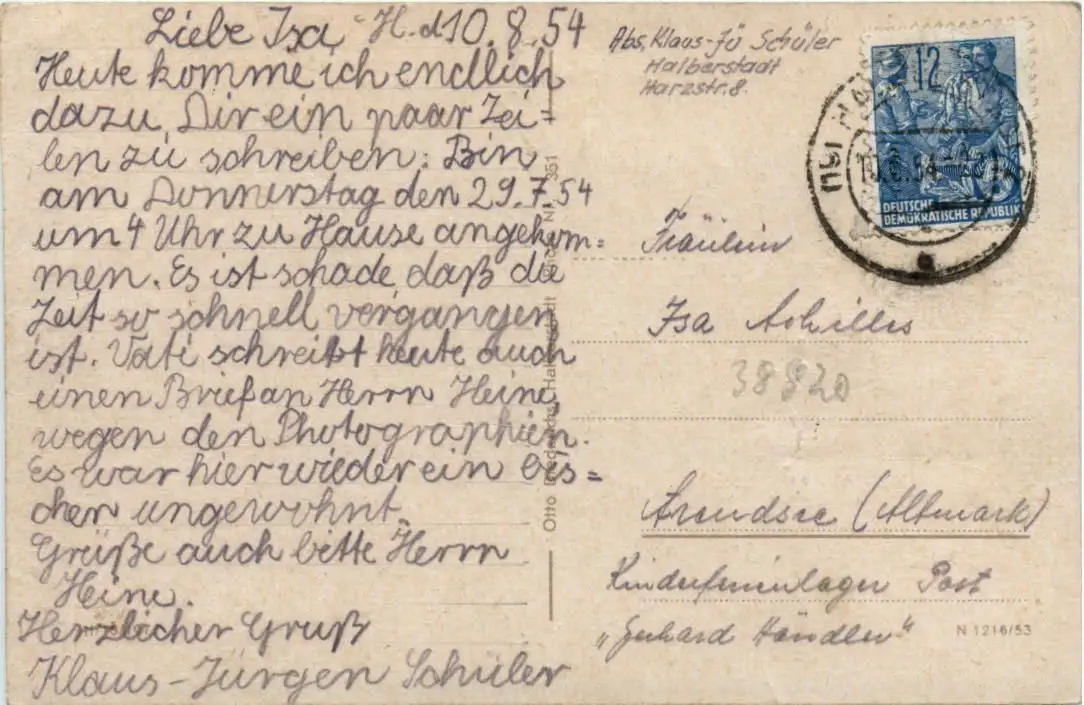 Liebe Isa, H. d 10.8.54
Heute komme ich endlich
dazu, Dir ein paar Zei=
len zu schreiben: Bin
am Donnerstag den 29.7.54
um 4 Uhr zu Hause angekom=
men. Es ist schade, daß die
Zeit so schnell vergangen
ist. Vati schreibt heute auch
einen Brief an Herrn Heine,
wegen den Photographien.
Es war hier wieder ein bis=
chen ungewohnt.
Grüße auch bitte Herrn
Heine.
Herzlicher Gruß
Klaus-Jürgen Schüler
Otto
Abs. Klaus-Jü Schüler
Halberstadt
Harzstr. 8.
12
DEUTSCHE
DEMOKRATISCHE REPUBLIK
Fräulein
Isa Achilles
38920
Arendsee (Altmark)
Kinderferienlager Post
„Gerhard Händler"
N 1216/53